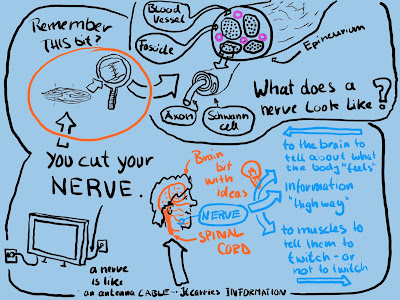 Remember
THIS bit?
Blood
Vessel
Fascicle
Epineurium
Axon
Schwann
cell
What does a
nerve look like?
You cut your
NERVE.
a nerve
is like
an antenna CABLE - It carries INFORMATION
Brain
bit
with
ideas
NERVE
SPINAL
CORD
to the brain to
tell about what
the body "feels"
Information
"Highway"
to muscles to
tell them to
twitch - or
not to twitch